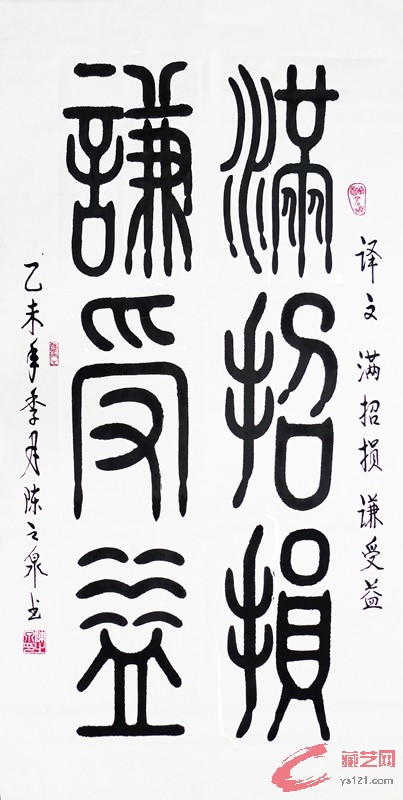 译文 满招损 谦受益
滿招損
謙受益
乙未年季月陈之泉书
藏艺网
ys121.com